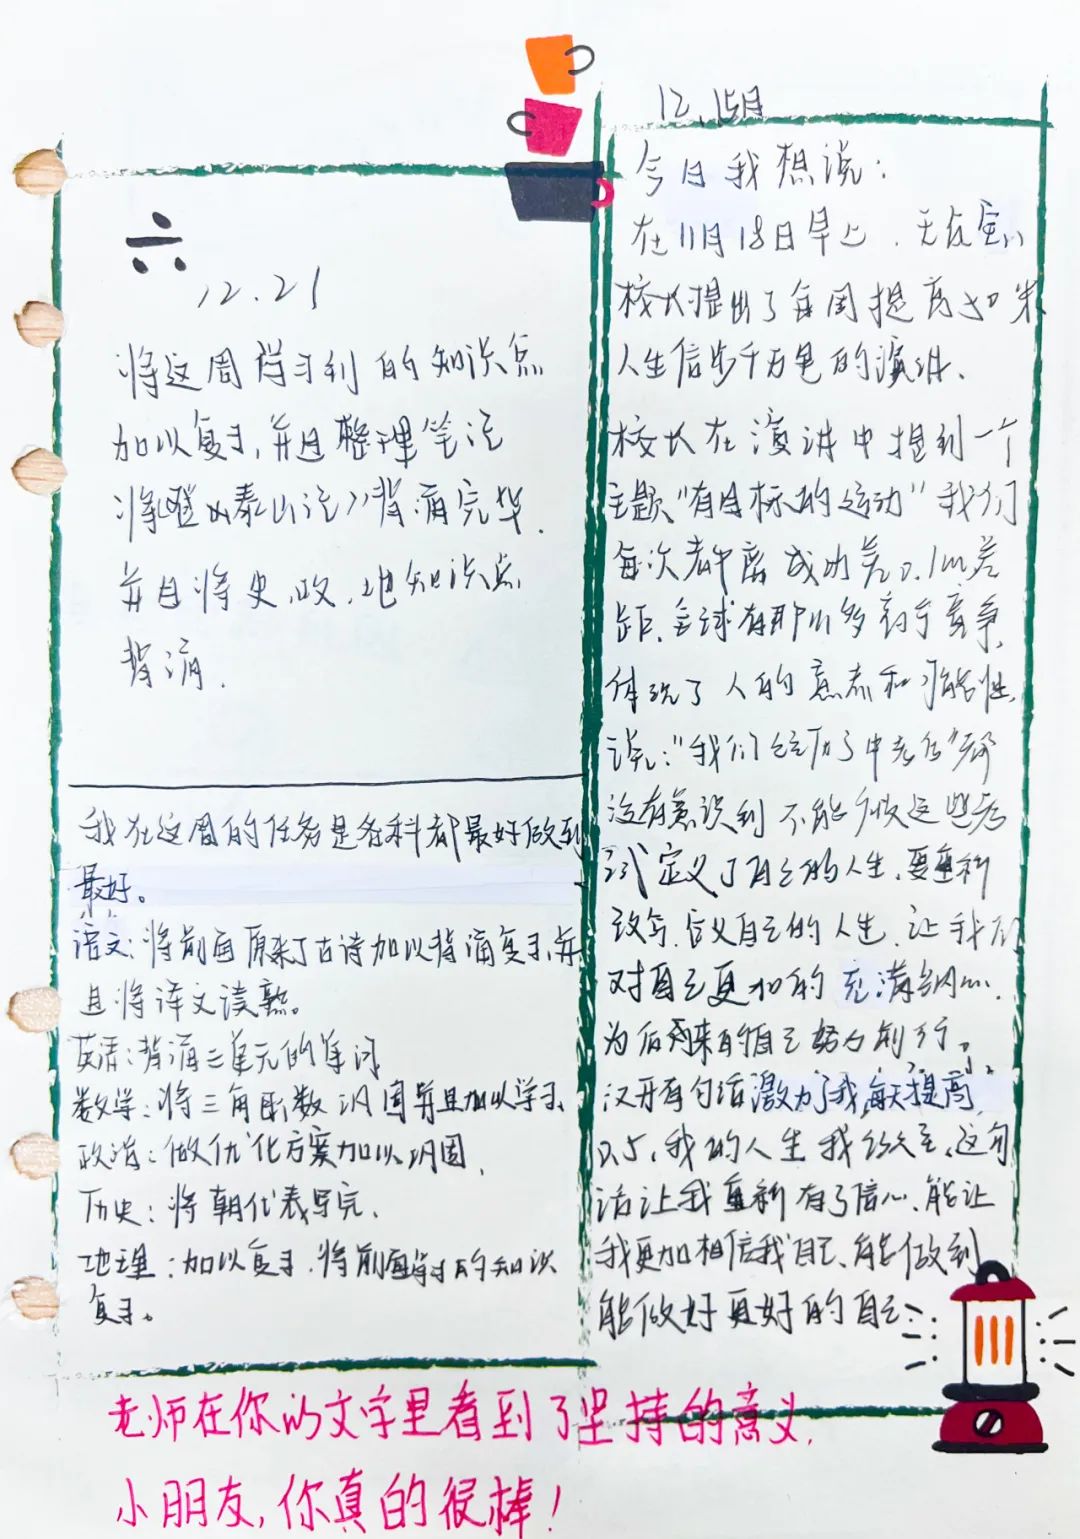 六
12.21
将这周学习到的知识点
加以复习,并且整理笔记
将《登泰山记》背诵完毕.
并且将史.政.地知识点
背诵.
我在这周的任务是各科都最好做到
最好。
语文:将前面原来了古诗加以背诵复习,并
且将译文读熟。
英语:背诵三单元的单词
数学:将三角函数巩固并且加以学习.
政治:做优化方案加以巩固.
历史:将朝代表写完.
地理:加以复习.将前面学过的知识
复习。
12.
今日我想说:
在11月18日早上.
校长提出了每周提高
人生信步千万里的演讲.
校长在演讲中提到一个
主题“有目标的运动”我们
每次都离成功差0.1m差
距.全球有那么多 竞争.
体现了人的意志和可能性.
说:“我们经历了中考
没有意识到不能 这些考
试定义了自己的人生.要重新
改写.定义自己的人生.让我们
对自己更加的充满
为后来的自己努力前行。
有句话激励了我,每天提高
0.5.我的人生我 主.这句
话让我重新有了信心.能让
我更加相信我自己.能做到
能做好更好的自己.
老师在你的文字里看到了坚持的意义.
小朋友,你真的很棒!